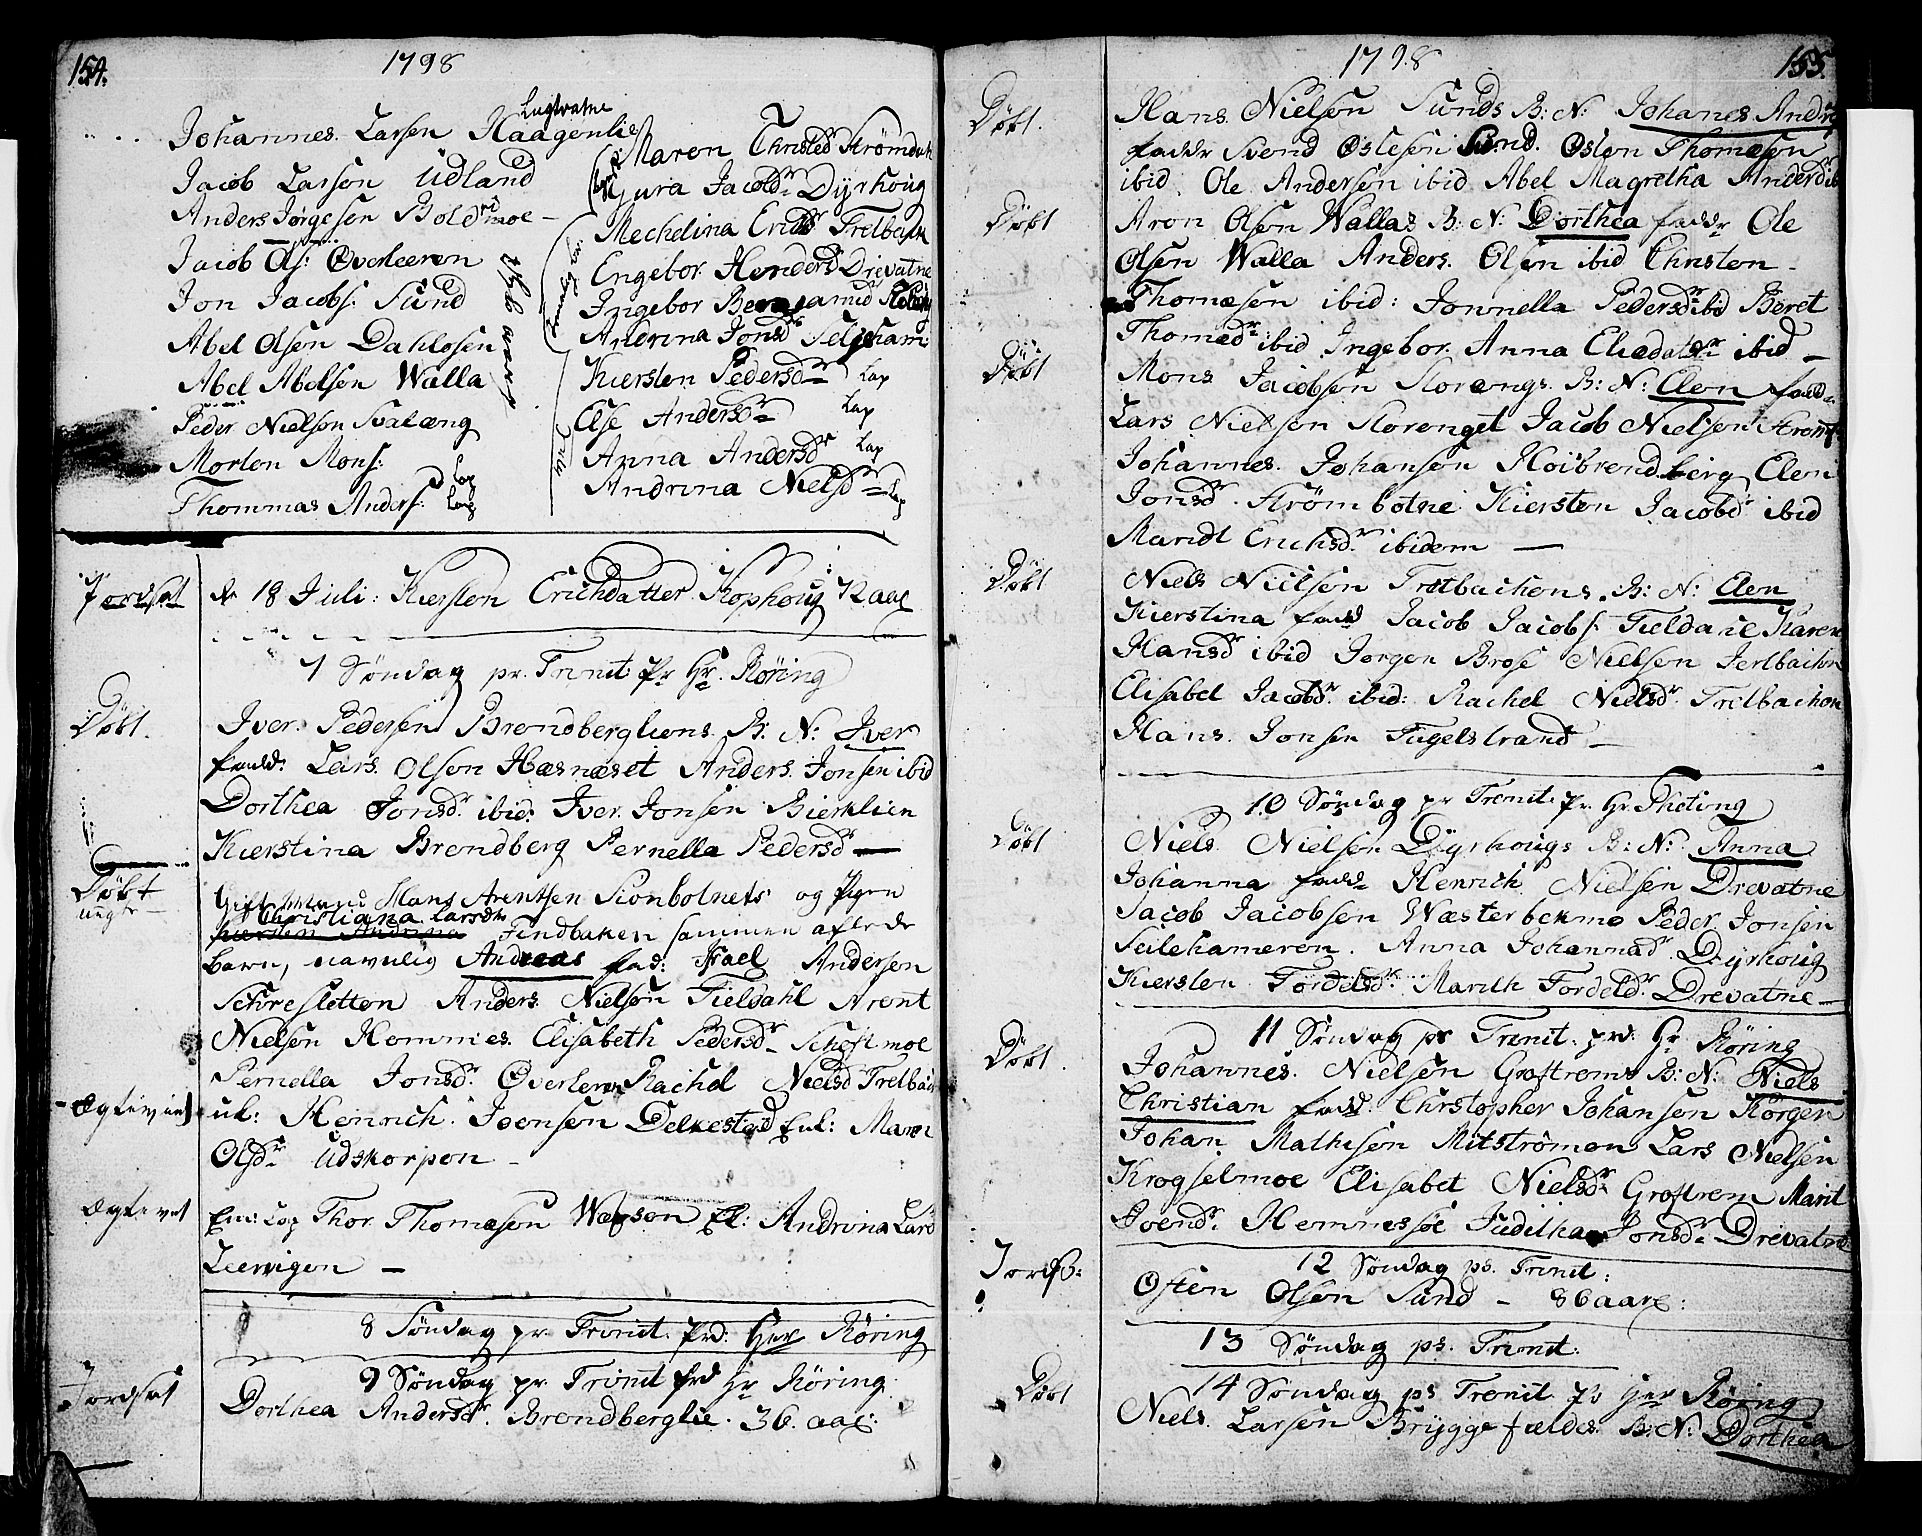 154.
1798
Johannes Larsen Haagenlie
Jacob Larsen Udland
Anders Jørgesen Boldermoe
Jacob Ols: Overleeren
Jon Jacobs: Sund
Abel Olsen Dahlosen
Abel Abelsen Walla
Peder Nielsen Svalæng
Morten Mons: Lap
Thommas Anders: Lap
Maren Christed
Gura Jacobdr Dyrhoug
Mechelina Ericdr Trelbakn
Engebor Hendersd Drevatne
Ingebor Benjamid
Andrina Jonsdr Seljeham:
Kiersten Pedersdr Lap
Else Andersdr Lap
Anna Andersdr Lap
Andrina Nielsdr Lap
Jordsat
d 18 Juli: Kiersten Erichdatter Kophoug
7 Søndag pr. Trinit: Pr Hr. Røring
Døbt.
Iver Pedersen Brendberglions B: N: Iver
fadd: Lars Olsen Hæsnæset Anders Jonsen ibid
Dorthea Jonsdr. ibid: Iver Jonsen Bierklien
Kierstina Brendberg Pernella Pedersdr
Døbt
uægte
Gift Mand Hans Arentsen og Pigen
Christiana Larsdtr
Findbaken sammen aflede
barn, navnlig Andreas fad: Andersen
Anders Nielsen Fieldahl Arent
Nielsen Hemmes Elisabeth Pedersdr
Pernella Jonsdr. Overleren Rachel Nielsd Trelbak
Ægteviet
uk: Henrich Joensen Delkestad Enk: Maren
Olsdr Udskorpen
Ægtevet
Em: Lap Thor Thomæsen P: Andrina Larsd
Leervigen
8 Søndag pr. Trinit. Prd: Her Røring
9 Søndag pr. Trinit prd Hr Røring
Jordsat
Dorthea Andersdr. Brendberglie. 36. aar:
1798
155.
Døbt.
Hans Nielsen Sunds B: N: Johanes Andre
faddr Svend Øslesen Sund. Osten Thomæsen
ibid. Ole Andersen ibid Abel Magretha Andersdr ib
Døbt
Aron Olsen Wallas B: N: Dorthea faddr Ole
Olsen Walla Anders Olsen ibid Christen
Thomæsen ibid: Jonnella Pedersdr ibid Beret
Thomædr ibid Ingebor Anna Eliædater ibid
Døbt
Mons Jacobsen Storængs B: N: Elen fadd
Lars Nielsen Storenget Jacob Nielsen
Johannes Johansen Høibrendberg Elen
Jonsdr. Strømbotne Kiersten Jacobdr ibid
Maridt Erichsdr. ibidem
Døbt
Niels Nielsen Tretbachens B: N: Elen
Kierstina fadd Jacob Jacobs: Fieldahl Karen
Hansdr ibid Jorgen Brose Nielsen
Elisabet Jacobdr. ibid: Rachel Nielsdr Trelbachen
Hans Jonsen Fugelstrand
10 Søndag pr Trinit: Pr. Hr.
Døbt
Niels Nielsen Dyrhougs B: N: Anna
Johanna fadd Henrich Nielsen Drevatne
Jacob Jacobsen Wæsterbekmo Peder Jonsen
Seilehameren. Anna Johannadr. Dyrhoug
Kiersten Tordelsdr. Marith Tordeldr. Drevatne
11 Søndag ps Trinit: prd: Hr Røring
Døbt.
Johannes Nielsen Groftrems B: N: Niels
Christian fadd. Christopher Johansen Korgen
Johan Mathisen Mitstrømen Lars Nielsen
Krogselmoe Elisabet Nielsdr Groftrem Marit
Svendr. Hemnessøe Juditha Jonsdr. Drevatne
12 Søndag ps. Trinit:
Jords:
Osten Olsen Sund 86 aar:
13 Søndag ps. Trinit:
14 Søndag ps. Trinit. Pr Her Røring
Døbt
Niels Larsen Bryggefældes B: N: Dorthea